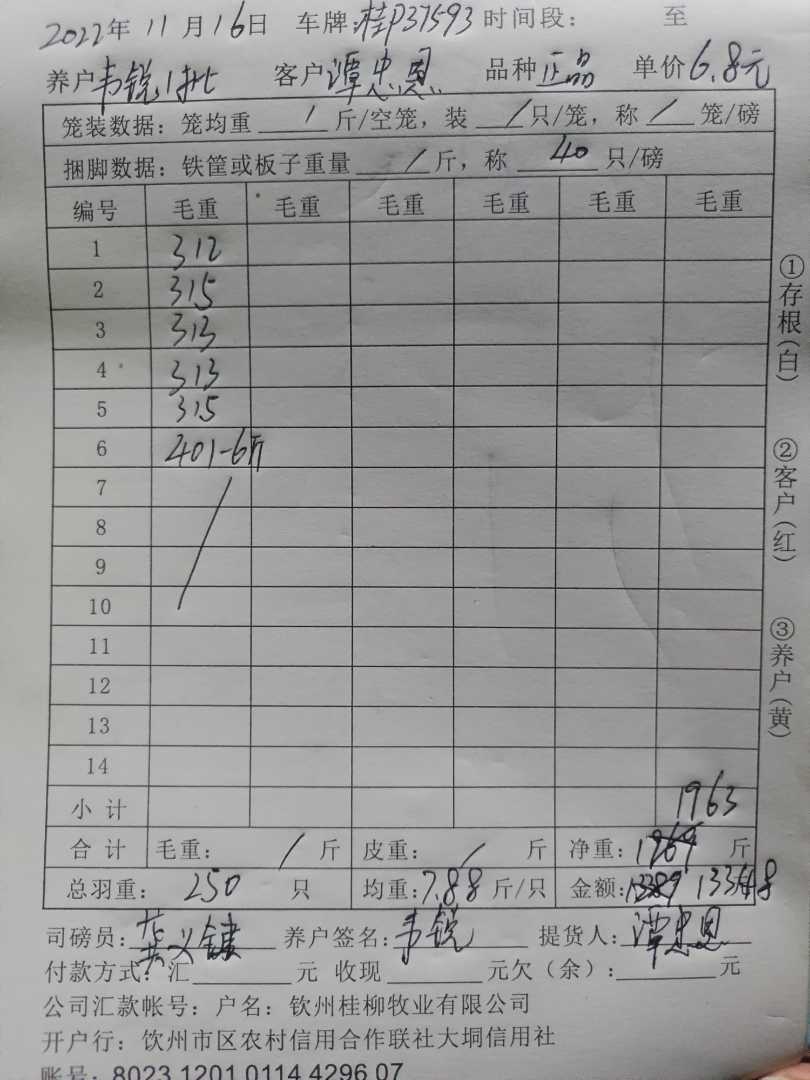 2022年 11月16日 车牌:桂P37593 时间段: 至
养户韦锐1批 客户谭忠恩 品种正品 单价6.8元
笼装数据:笼均重 / 斤/空笼,装 / 只/笼,称 / 笼/磅
捆脚数据:铁筐或板子重量 / 斤,称 40 只/磅
编号 毛重 毛重 毛重 毛重 毛重 毛重
1 312
2 315
3 313
4 313
5 315
6 401-6斤
7
8
9
10
11
12
13
14
小计 1963
合计 毛重: / 斤 皮重: / 斤 净重:1969 斤
总羽重: 250 只 均重:7.88斤/只 金额:13389 13348
司磅员: 养户签名:韦锐 提货人:谭忠恩
付款方式:汇 元 收现 元欠(余): 元
公司汇款帐号:户名:钦州桂柳牧业有限公司
开户行:饮州市区农村信用合作联社大垌信用社
账号:8023 1201 0114 4296 07
①存根(白)
②客户(红)
③养户(黄)